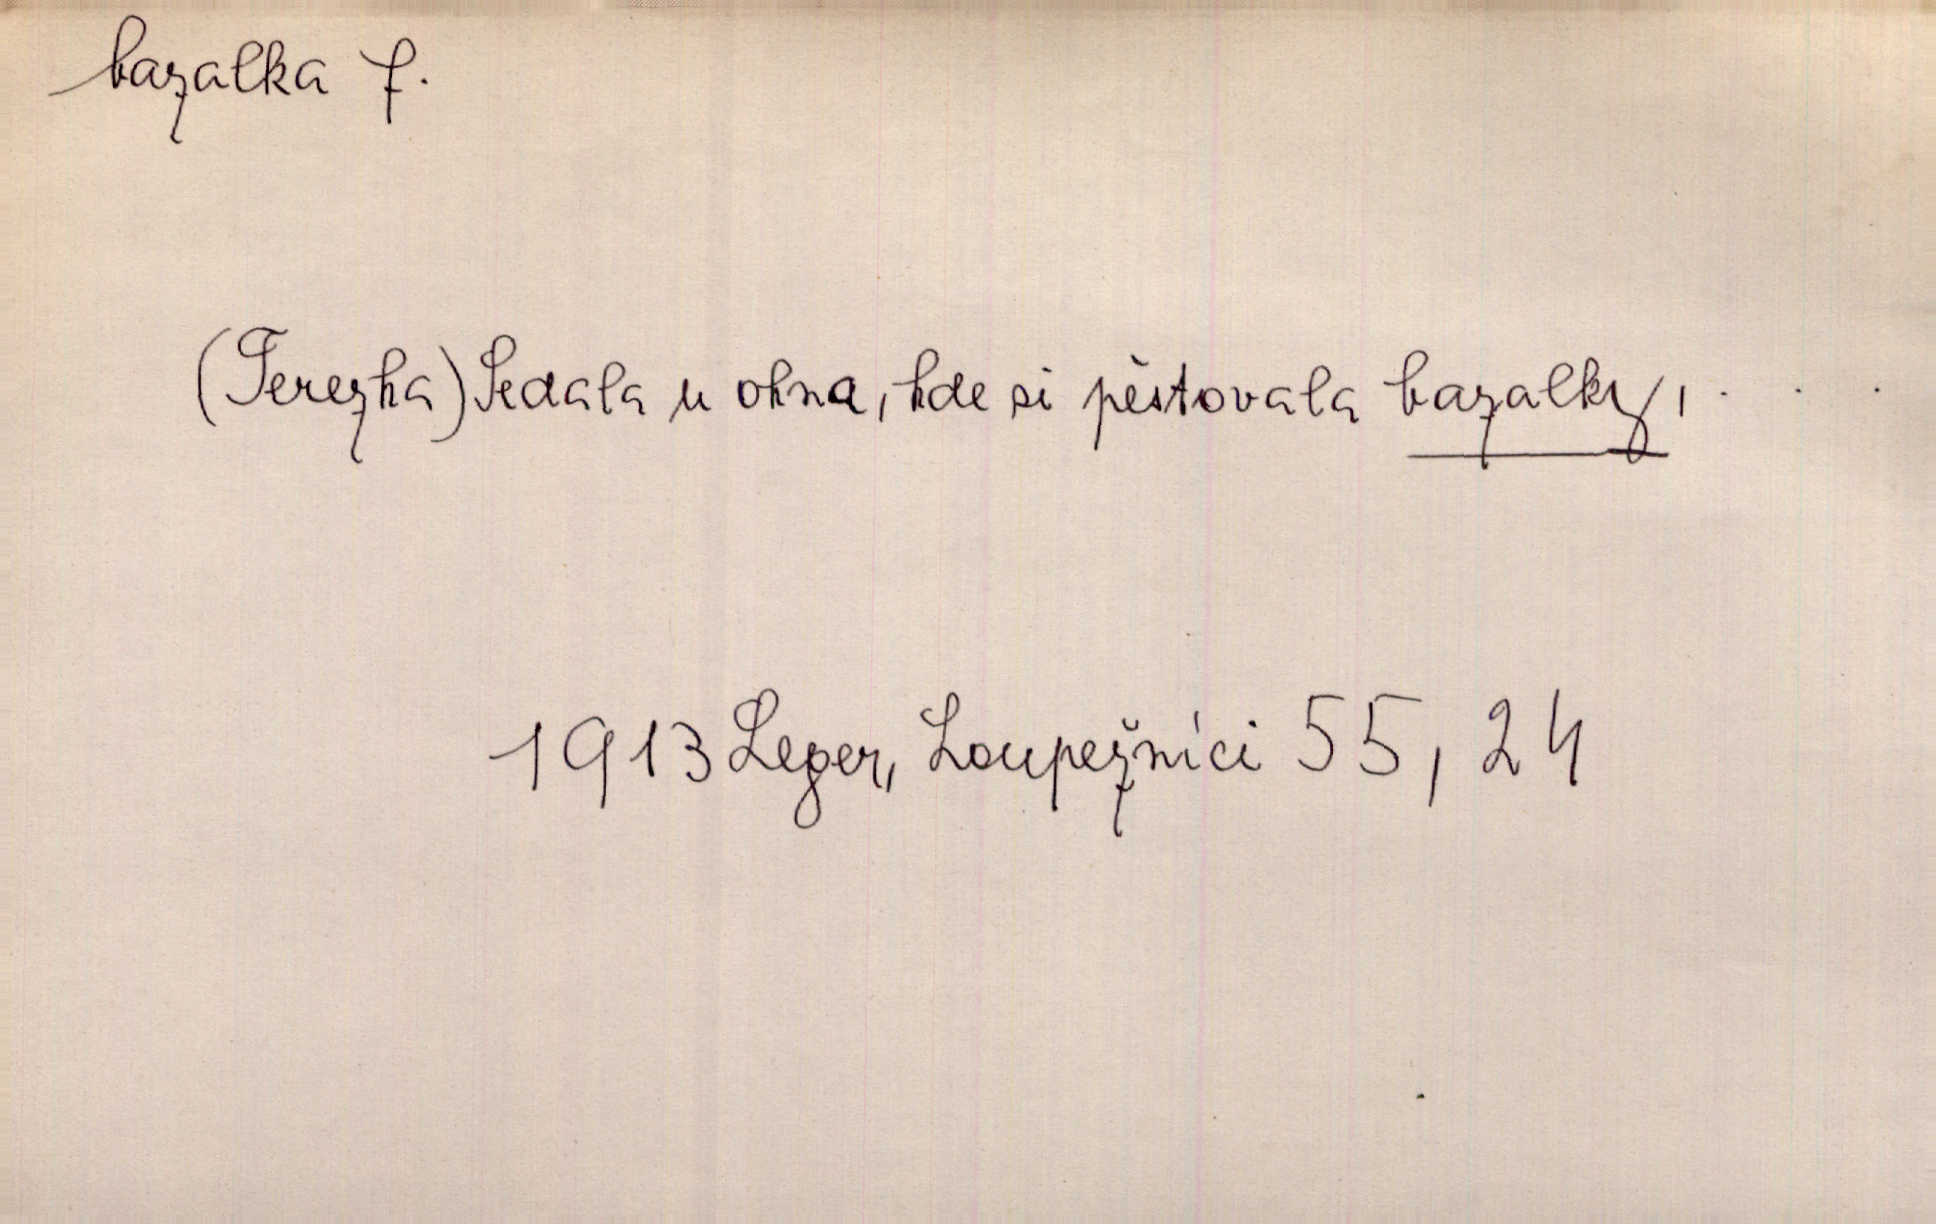 bazalka f.
(Terezka) Sedala u okna, kde si pěstovala bazalky, . . .
1913 Leger, Loupežníci 55, 24